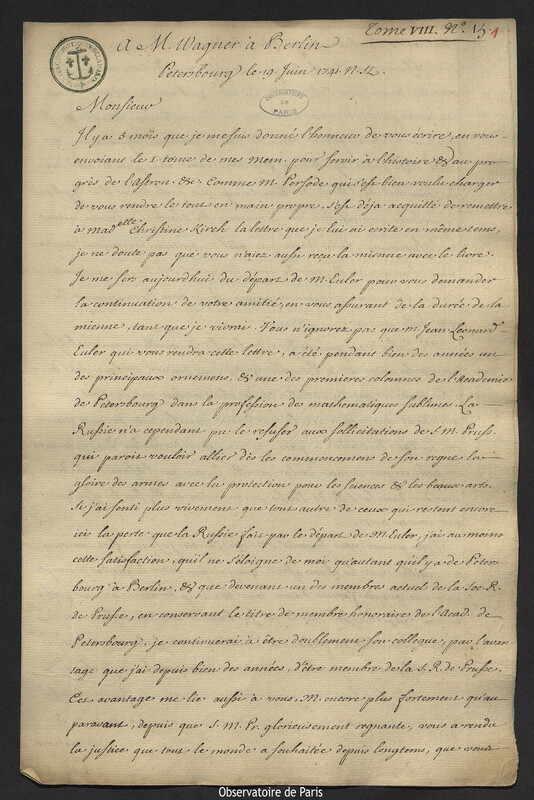 Tome VIII. N.º 15 1
A M. Wagner à Berlin
Petersbourg le 19 Juin 1741. N. St.
OBSERVATOIRE DE PARIS
Monsieur
Il y a 5 mois que je me suis donné l'honneur de vous écrire, en vous
envoiant le 1. tome de mes Mem. pour servir à l'histoire & au pro
grès de l'astron. &c. Comme M. Persode qui s'est bien voulu charger
de vous rendre le tout en main propre. s'est déja acquitté de remettre
à Mad.elle Christine Kirch la lettre que je lui ai ecrite en même tems,
je ne doute pas que vous n'aiez aussi reçu la mienne avec le livre.
Je me sers aujourdhui du départ de M. Euler pour vous demander
la continuation de votre amitié, en vous assurant de la durée de la
mienne, tant que je vivrai. Vous n'ignorez pas que M. Jean Leonard
Euler qui vous rendra cette lettre, a été pendant bien des années un
des principaux ornemens, & une des premieres colomnes de l'Academie
de Petersbourg dans la profession des mathematiques sublimes. La
Russie n'a cependant pu le refuser aux sollicitations de S. M. Pruss.
qui paroit vouloir allier dès les commencemens de son regne la
gloire des armes avec la protection pour les sciences & les beaux arts.
Si j'ai senti plus vivement que tout autre de ceux qui restent encore
ici la perte que la Russie fait par le départ de M. Euler, j'ai au moins
cette satisfaction, qu'il ne s'éloigne de moi qu'autant qu'il y a de Peters
bourg à Berlin, & que devenant un des membres actuel de la Soc. R.
de Prusse, en conservant le titre de membre honoraire de l'Acad. de
Petersbourg. je continuerai à être doublement son collegue, par l'avan
tage que j'ai depuis bien des années, d'être membre de la S. R. de Prusse.
Cet avantage me lie aussi à vous, M. encore plus fortement qu'au
paravant, depuis que S. M. Pr. glorieusement regnante, vous a rendu
la justice que tout le monde a souhaitée depuis longtems, que vous
Observatoire de Paris